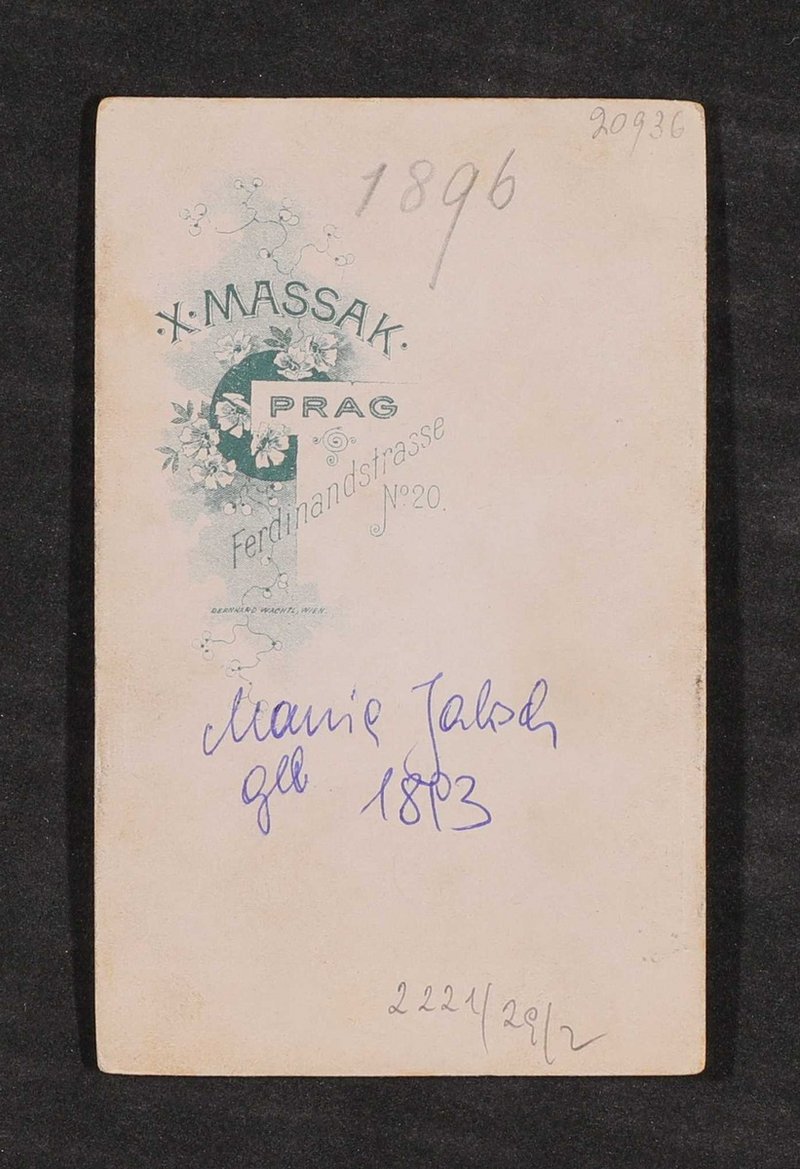 20936
1896
·X·MASSAK·
PRAG
Ferdinandstrasse
No 20.
BERNHARD WACHTL, WIEN.
Maria Jaksch
geb 1893
2221/29/2